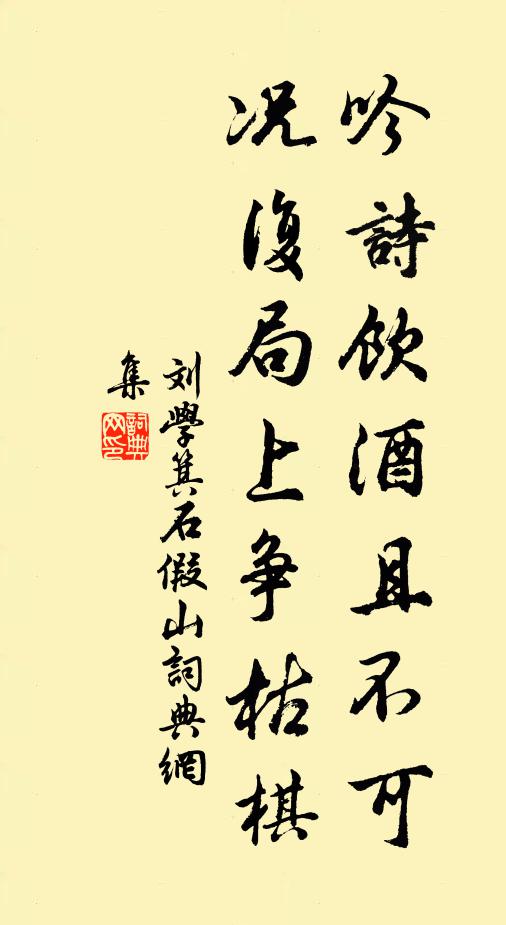 吟詩飲酒且不可
况復局上争枯棋
刘學箕石假山詞典網
集
詞典
网印